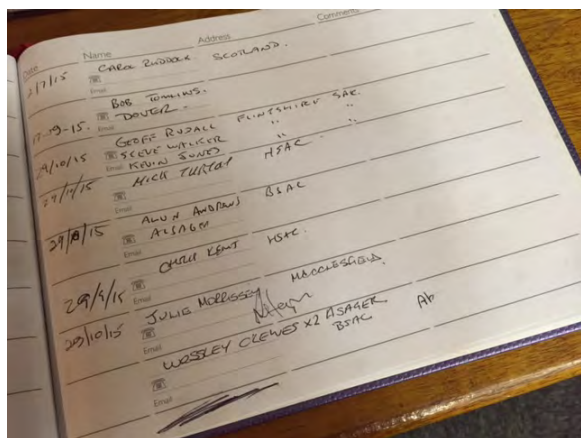 Date Name Address Comments
2/7/15 CAROL RUDDOCK SCOTLAND.
Email
BOB TOMKINS.
17-09-15. DOVER -
Email
GEOFF RUDALL FLINTSHIRE SAC.
29/10/15 STEVE WALKER " "
Email KEVIN JONES " "
MICK HSAC.
Email
ALUN ANDREWS BSAC
ALSAGER
Email
CHRIS KENT HSAC
Email
JULIE MORRISSEY MACCLESFIELD.
29/10/15
Email
WESSLEY CLEWES X2 ALSAGER
BSAC
Email